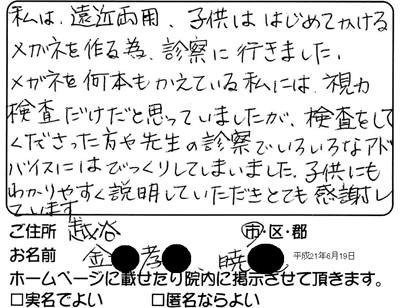 私は、遠近両用、子供は はじめてかける
メガネを作る為、診察に行きました。
メガネを何本もかえている私には、視力
検査だけだと思っていましたが、検査をして
くださった方や先生の診察でいろいろなアド
バイスにはびっくりしてしまいました。子供にも
わかりやすく説明していただきとても感謝し
ています
ご住所 越谷 市・区・郡
お名前 金●孝●、暁● 平成21年6月19日
ホームページに載せたり院内に掲示させて頂きます。
□実名でよい □匿名ならよい